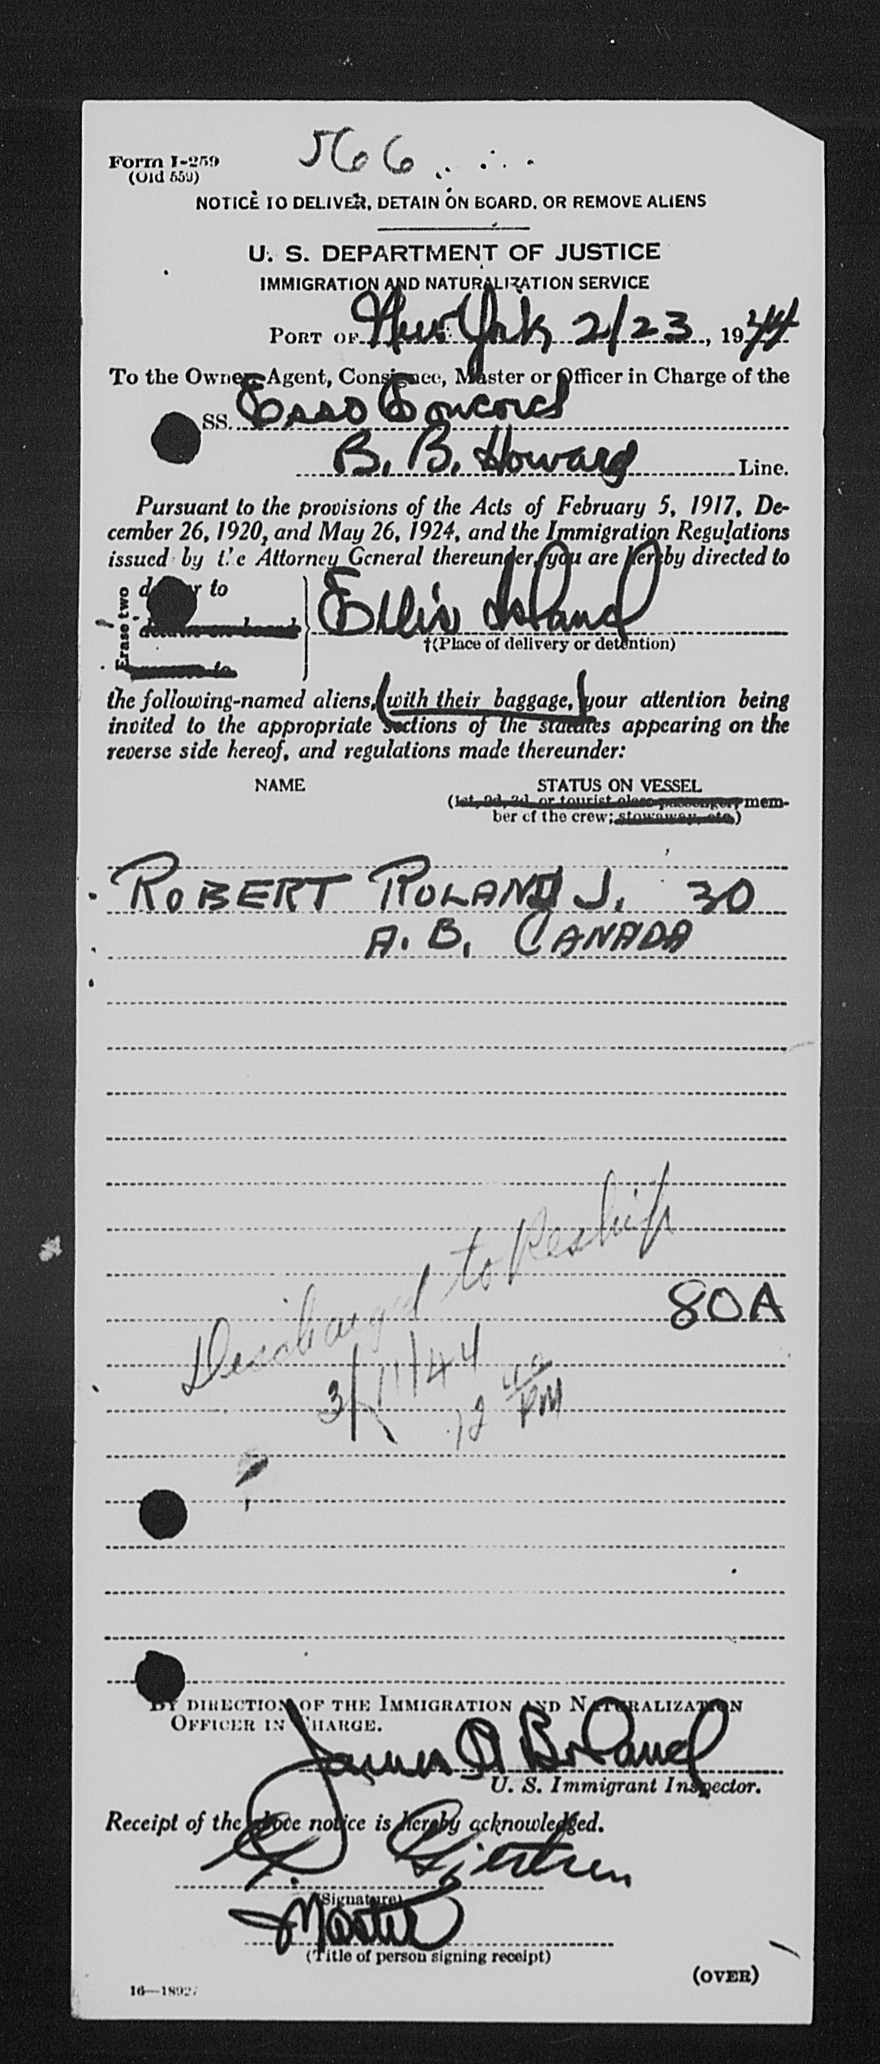 566
Form I-259
(Old 559)
NOTICE TO DELIVER, DETAIN ON BOARD, OR REMOVE ALIENS
U. S. DEPARTMENT OF JUSTICE
IMMIGRATION AND NATURALIZATION SERVICE
PORT OF New York 2/23, 1944
To the Owner, Agent, Consignee, Master or Officer in Charge of the
SS. Esso Concord
B. B. Howard Line.
Pursuant to the provisions of the Acts of February 5, 1917, De-
cember 26, 1920, and May 26, 1924, and the Immigration Regulations
issued by the Attorney General thereunder, you are hereby directed to
Erase two
deliver to
detain on board
remove to
Ellis Island
†(Place of delivery or detention)
the following-named aliens, (with their baggage,) your attention being
invited to the appropriate sections of the statutes appearing on the
reverse side hereof, and regulations made thereunder:
NAME STATUS ON VESSEL
(1st, 2d, 3d, or tourist class passenger; mem-
ber of the crew; stowaway, etc.)
ROBERT ROLAND J. 30
A. B. CANADA
Discharged to Reship
80A
3/11/44
12 40 PM
BY DIRECTION OF THE IMMIGRATION AND NATURALIZATION
OFFICER IN CHARGE.
James
U. S. Immigrant Inspector.
Receipt of the above notice is hereby acknowledged.
G. Gjertsen
(Signature)
Master
(Title of person signing receipt)
(OVER)
16—18927